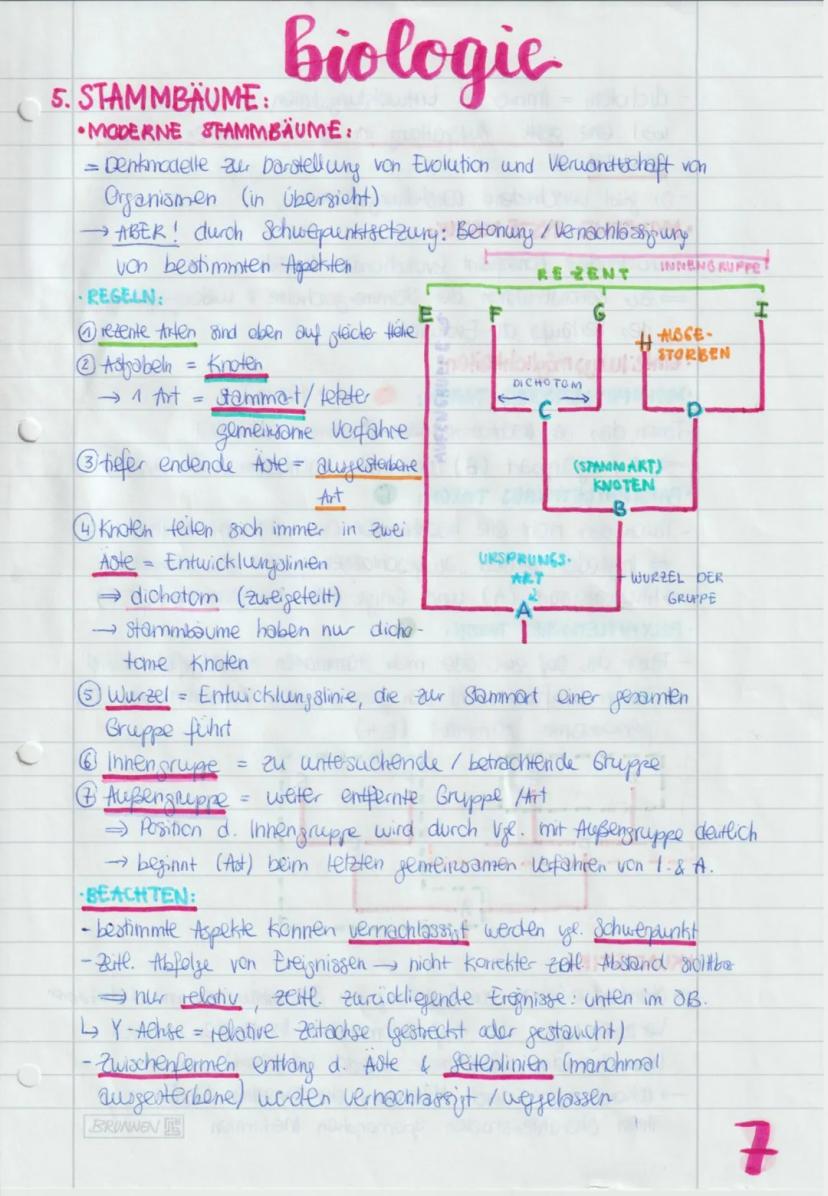 Biologie
5. STAMMBÄUME:
• MODERNE STAMMBÄUME:
= Denkmodelle zur Darstellung von Evolution und Verwandtschaft von
Organismen (in Übersicht)
→ ABER! durch Schwerpunktsetzung: Betonung / Vernachlässigung
von bestimmten Aspekten
• REGELN:
① rezente Arten sind oben auf gleicher Höhe
② Astgabeln = Knoten
→ 1 Art = Stammart / letzter
gemeinsame Vorfahre
③ tiefer endende Äste = ausgestorbene
Art
④ Knoten teilen sich immer in zwei
Äste = Entwicklungslinien
⇒ dichotom (zweigeteilt)
→ Stammbäume haben nur dicho-
tome Knoten
INNENGRUPPE
REZENT
E F G I
AUSGE-
STORBEN
AUẞENGRUPPE
DICHOTOM
C D
(STAMMART)
KNOTEN
B
URSPRUNGS-
ART
WURZEL DER
GRUPPE
A
⑤ Wurzel = Entwicklungslinie, die zur Stammart einer gesamten
Gruppe führt
⑥ Innengruppe = zu untersuchende / betrachtende Gruppe
⑦ Außengruppe = weiter entfernte Gruppe / Art
⇒ Position d. Innengruppe wird durch Vgl. mit Außengruppe deutlich
→ beginnt (Ast) beim letzten gemeinsamen Vorfahren von I. & A.
• BEACHTEN:
- bestimmte Aspekte können vernachlässigt werden vgl. Schwerpunkt
- Zeitl. Abfolge von Ereignissen → nicht korrekter zeitl. Abstand sichtbar
⇒ nur relativ, zeitl. zurückliegende Ereignisse: unten im SB.
↳ Y-Achse = relative Zeitachse (gestreckt oder gestaucht)
- Zwischenformen entlang d. Äste & Seitenlinien (manchmal
ausgestorbene) werden vernachlässigt / weggelassen
BRUNNEN
7